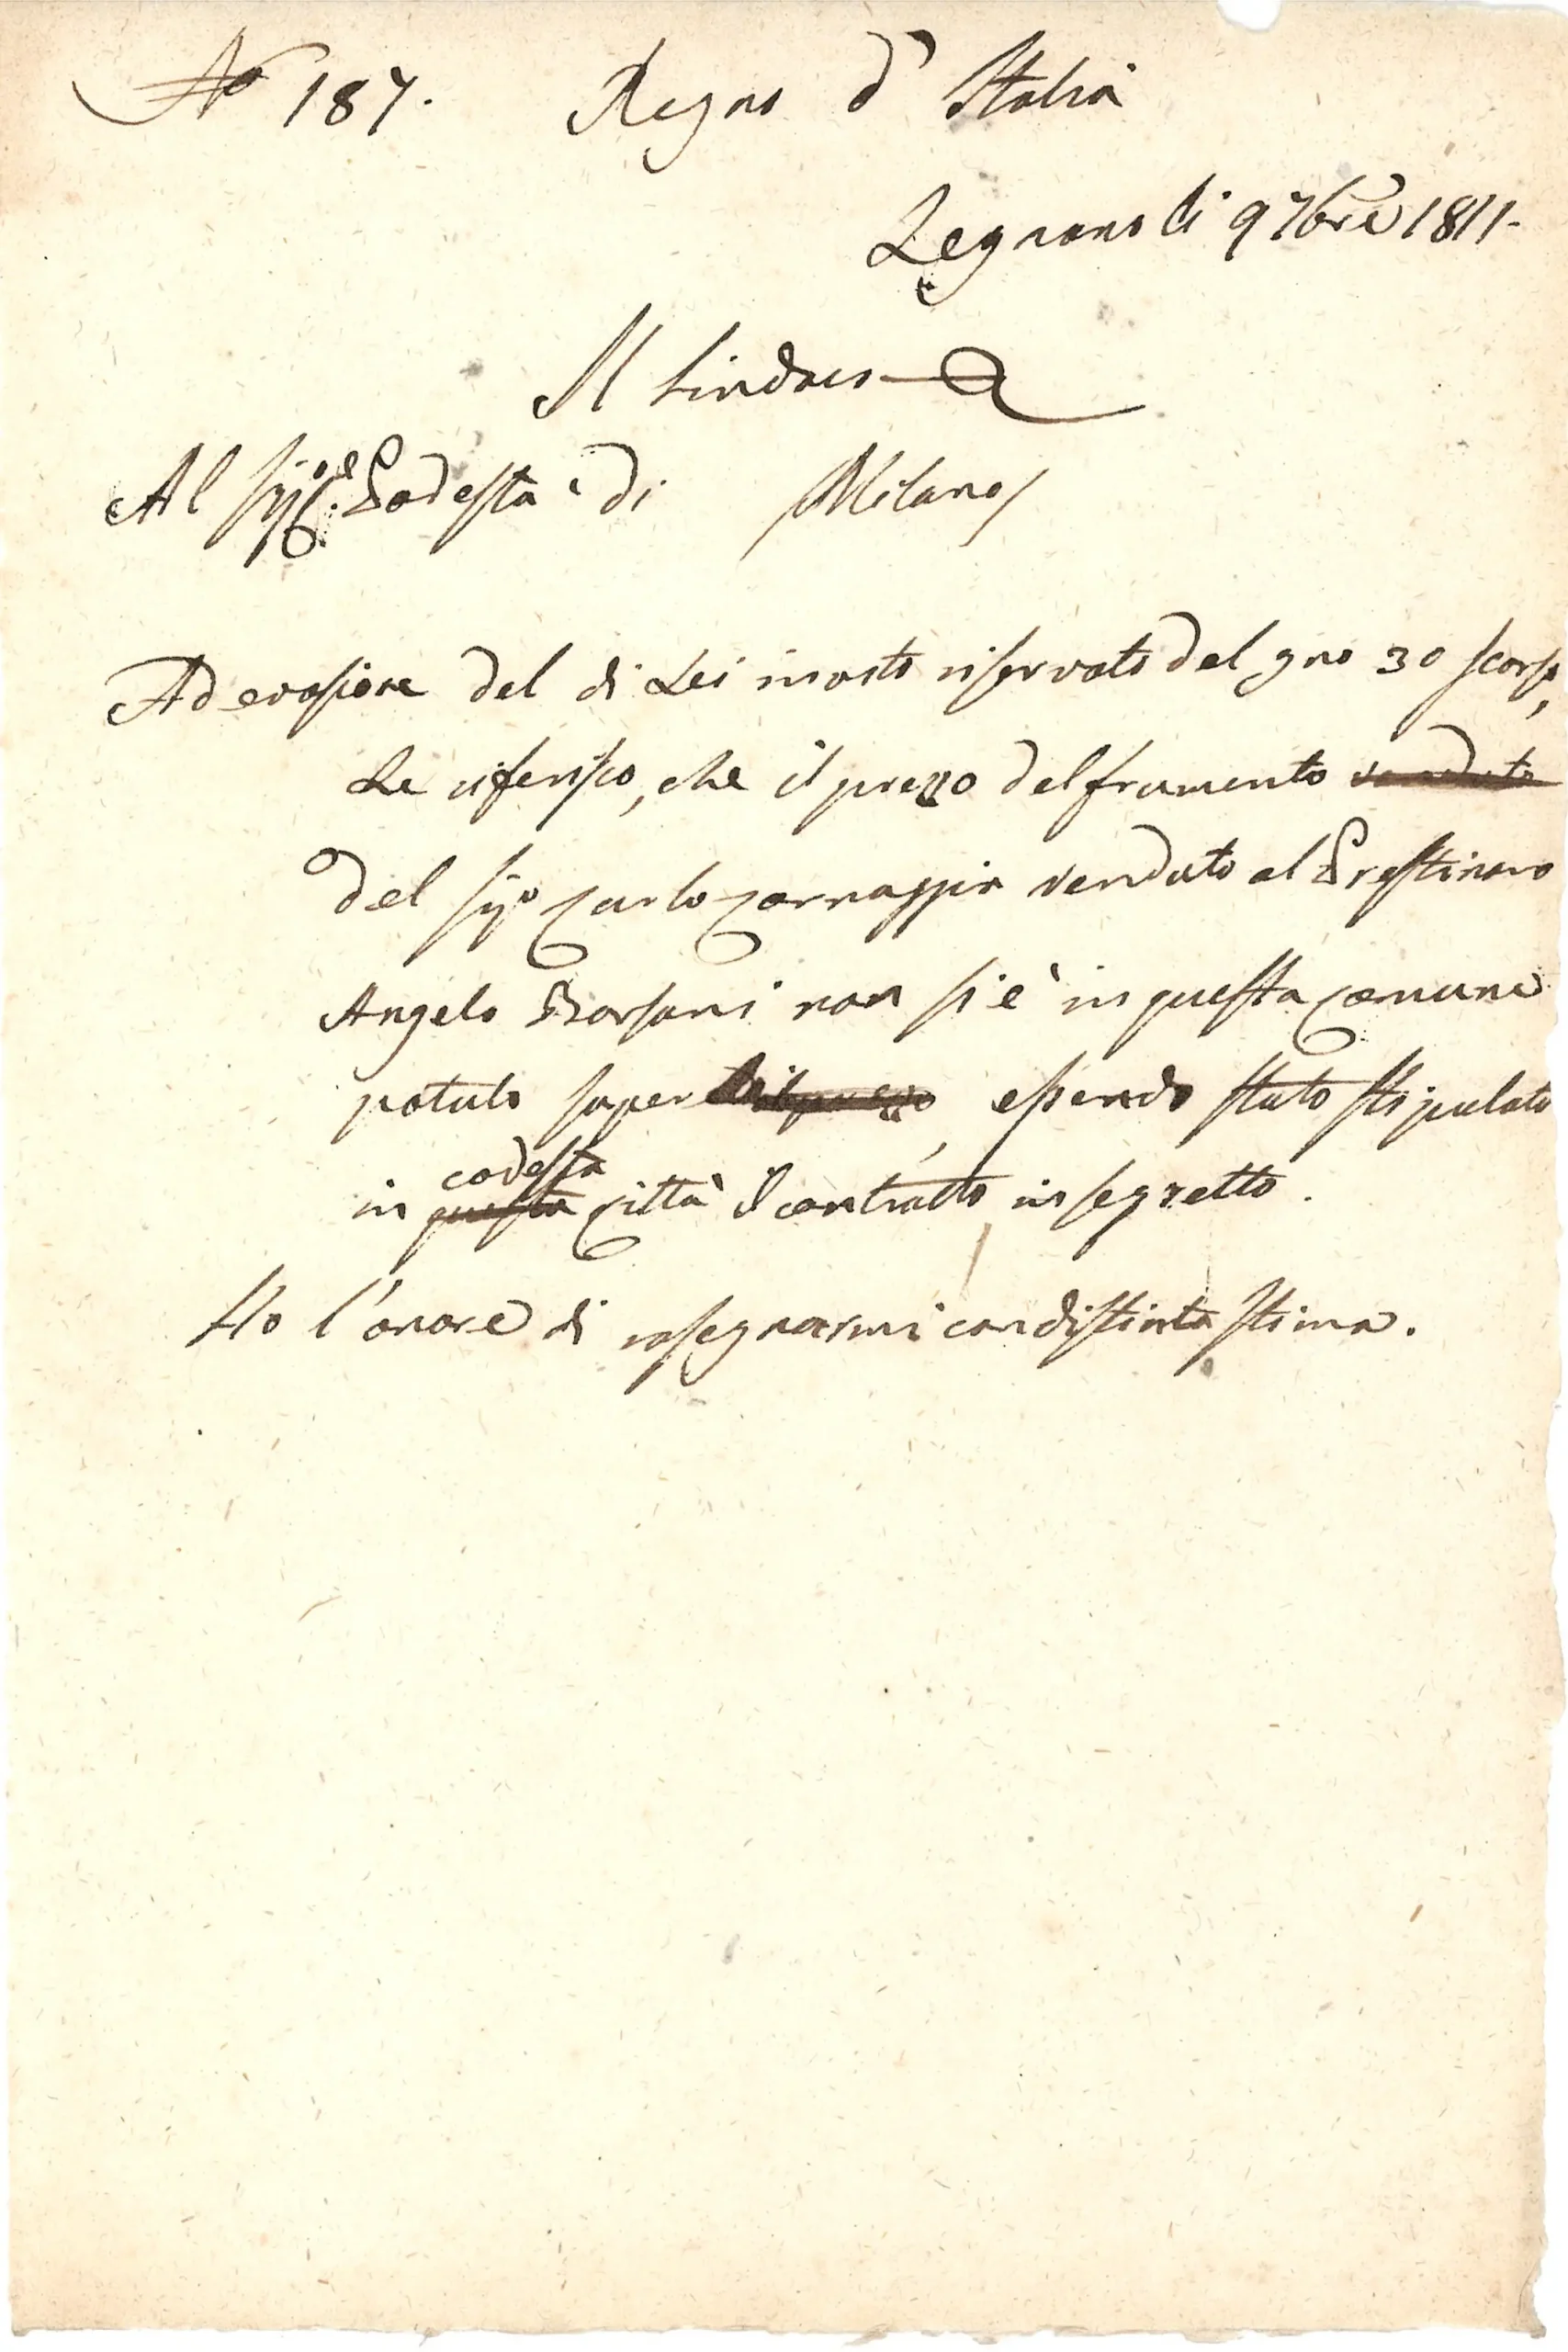 N.o 187. Regno d'Italia
Legnano li 9 7bre 1811.
Il Sindaco
Al Sig.e Podestà di Milano
Ad evasione del di Lei invito riservato del gno 30 scorso,
Le riferisco, che il prezzo del frumento venduto
del Sig.o Carlo Cornaggia venduto al Prestinaro
Angelo Borsani non si è in questa Comune
potuto saper il prezzo, essendo stato stipulato
codesta
in questa Città il contratto in segretto.
Ho l'onore di rassegnarmi con distinta stima.